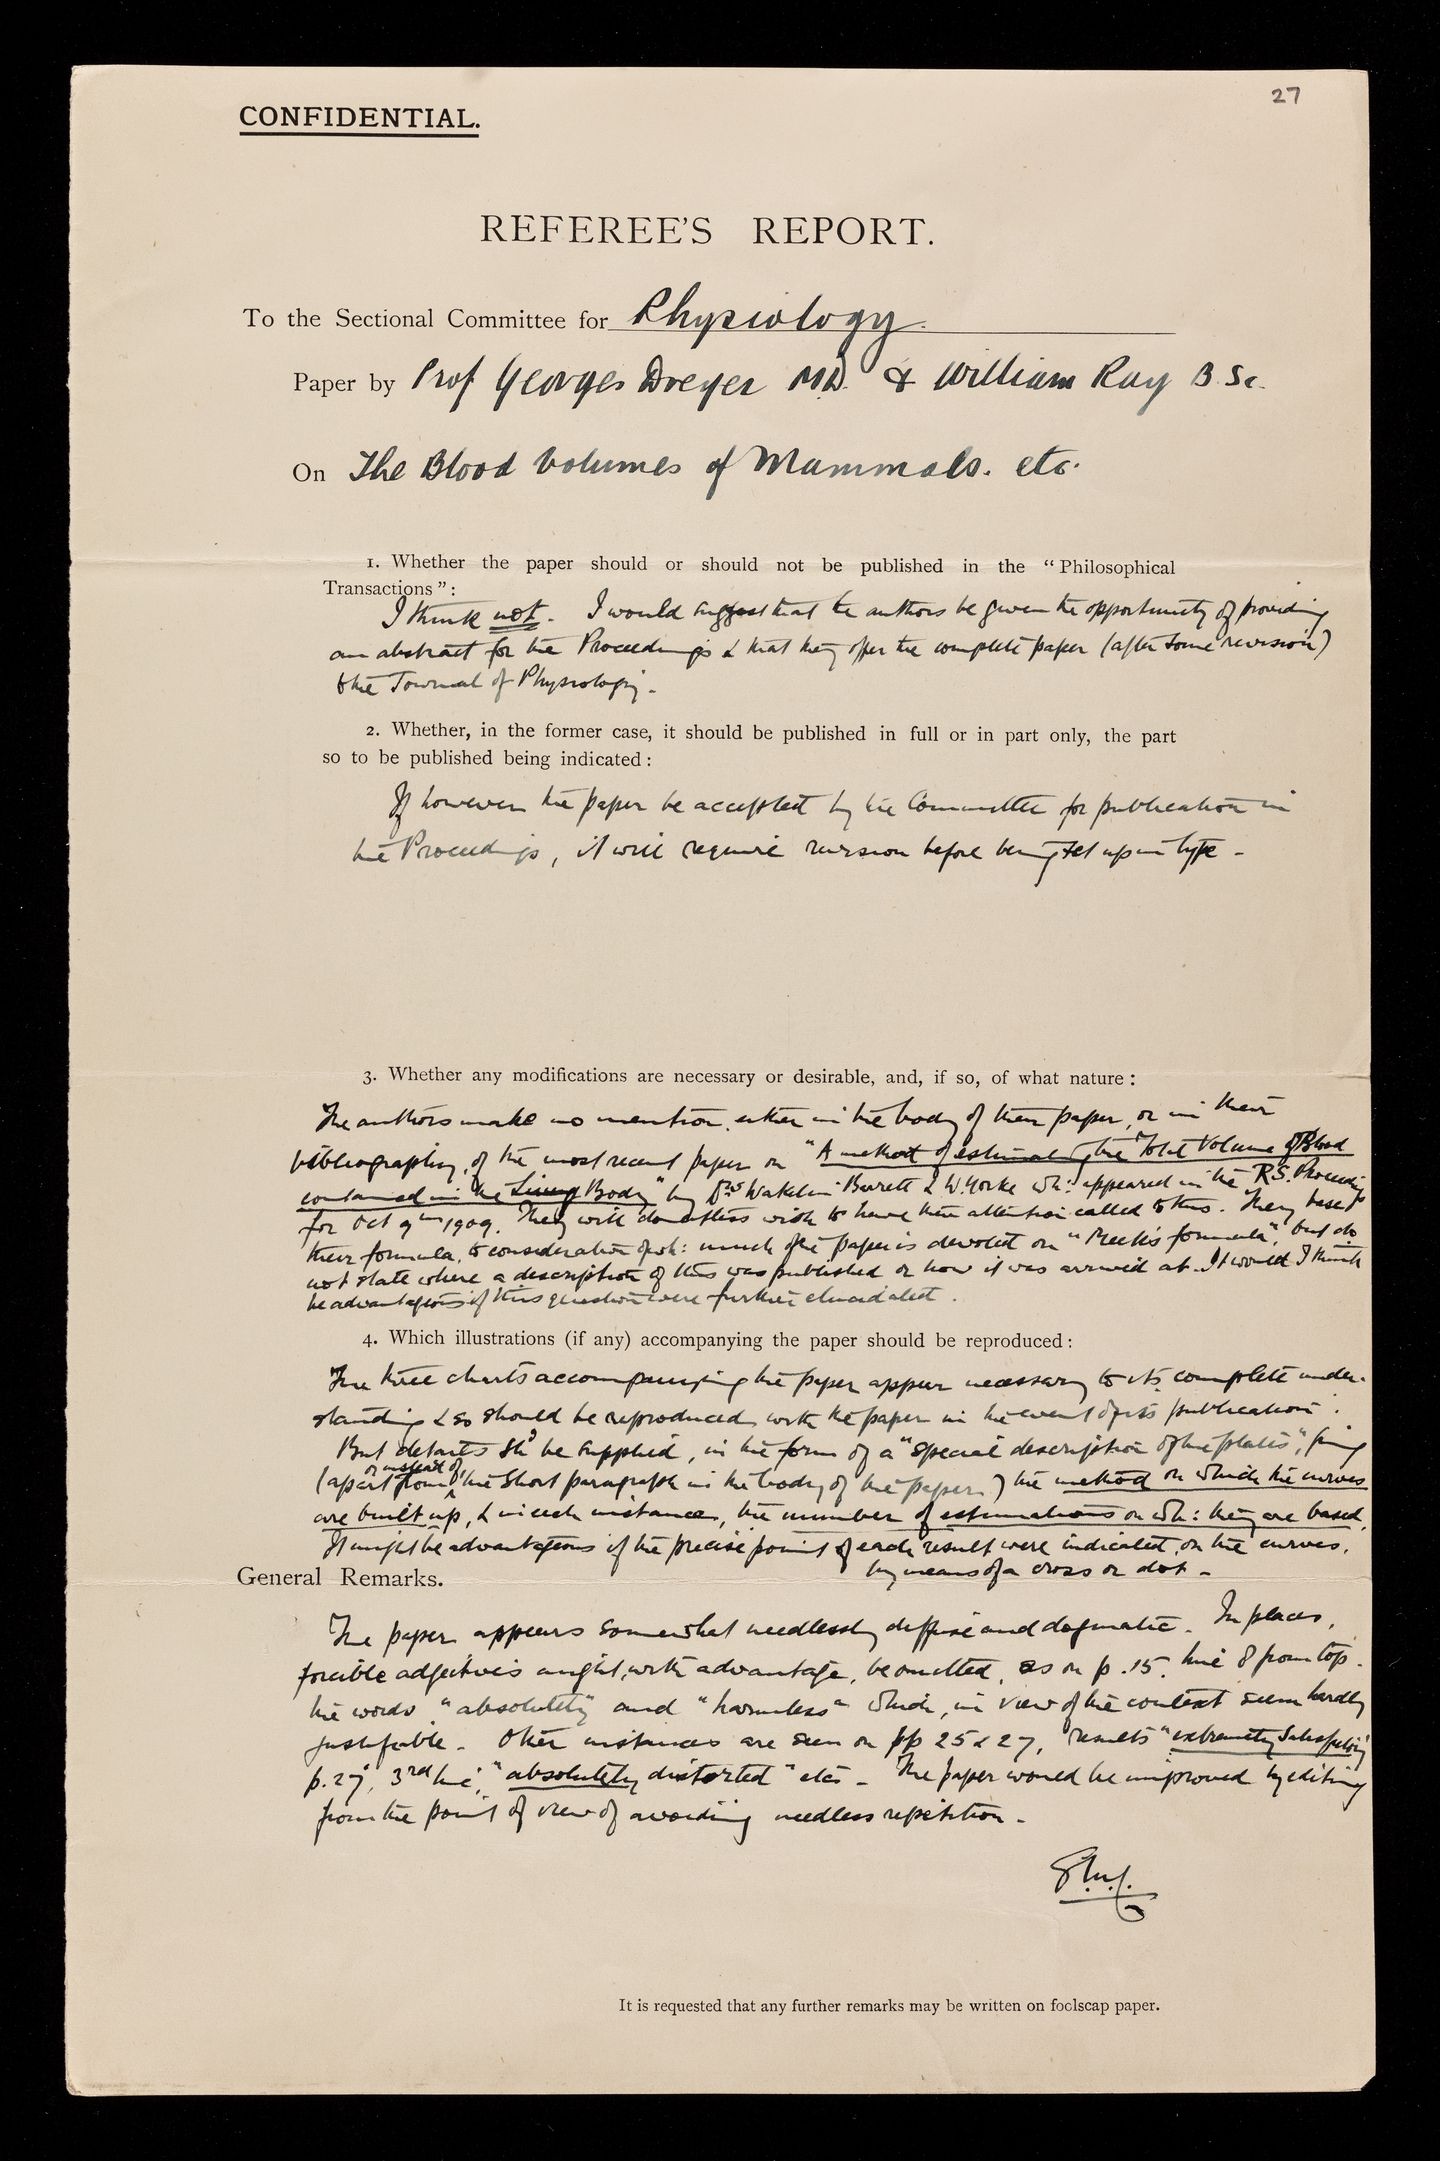 27
CONFIDENTIAL.
REFEREE'S REPORT.
To the Sectional Committee for Physiology.
Paper by Prof Georges Dreyer M.D. & William Ray B.Sc.
On The Blood Volumes of Mammals. etc.
1. Whether the paper should or should not be published in the "Philosophical
Transactions":
I think not. I would suggest that the authors be given the opportunity of providing
an abstract for the Proceedings & that they offer the complete paper (after some revision)
to the Journal of Physiology.
2. Whether, in the former case, it should be published in full or in part only, the part
so to be published being indicated:
If however the paper be accepted by the Committee for publication in
the Proceedings, it will require revision before being set up in type -
3. Whether any modifications are necessary or desirable, and, if so, of what nature:
The authors make no mention, either in the body of their paper, or in their
bibliography, of the most recent paper on "A method of estimating the Total Volume of Blood
contained in the Living Body" by Drs Wakelin Barrett & W. Yorke wh: appeared in the R.S. Proceedings
for Oct 9th 1909. They will doubtless wish to have their attention called to this. They based
their formula, to consideration of wh: much of the paper is devoted on "Meeh's formula", but do
not state where a description of this was published or how it was arrived at. It would I think
be advantageous if this question were further elucidated.
4. Which illustrations (if any) accompanying the paper should be reproduced:
The three charts accompanying the paper appear necessary to its complete under-
standing & so should be reproduced with the paper in the event of its publication.
But details shd be supplied, in the form of a "special description of the plates",
or instead of
(apart from, the short paragraph in the body of the paper) the method on which the curves
are built up, & in each instance, the number of estimations on wh: they are based.
It might be advantageous if the precise point of each result were indicated on the curves,
by means of a cross or dot -
General Remarks.
The paper appears somewhat needlessly diffuse and dogmatic. In places,
forcible adjectives might, with advantage, be omitted, as on p. 15. line 8 from top.
the words "absolutely" and "harmless" which, in view of the context seem hardly
justifiable. Other instances are seen on pp 25 & 27, results "extremely satisfactory"
p. 27, 3rd line, "absolutely distorted" etc - The paper would be improved by editing
from the point of view of avoiding needless repetition -
It is requested that any further remarks may be written on foolscap paper.